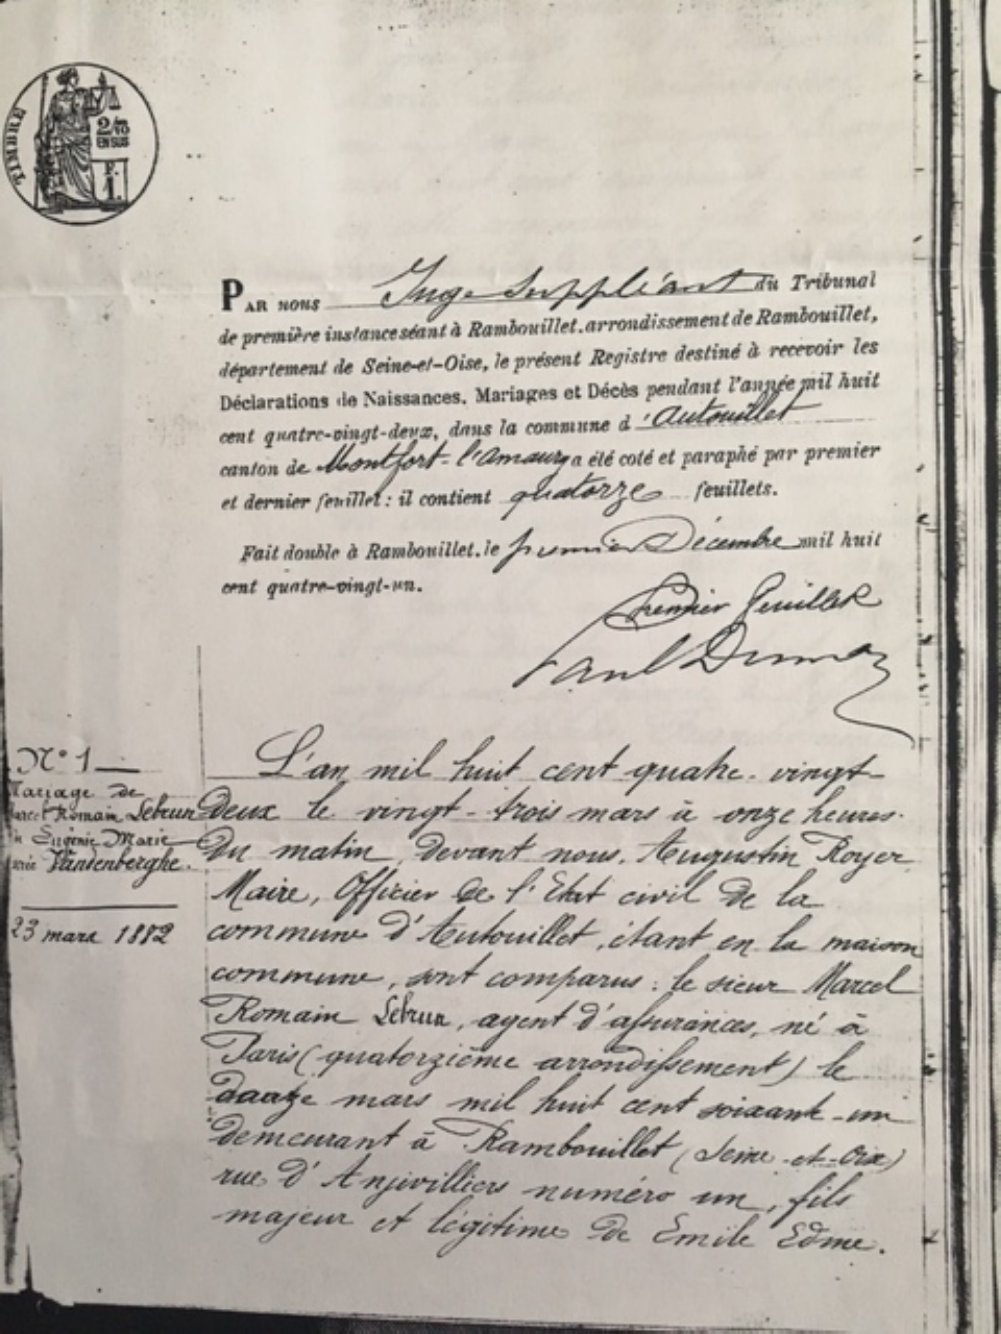 TIMBRE
2/10
EN SUS
F.
1.
PAR nous Juge Suppléant du Tribunal
de première instance séant à Rambouillet, arrondissement de Rambouillet,
département de Seine-et-Oise, le présent Registre destiné à recevoir les
Déclarations de Naissances, Mariages et Décès pendant l'année mil huit
cent quatre-vingt-deux, dans la commune d'Autouillet
canton de Montfort-l'Amaury a été coté et paraphé par premier
et dernier feuillet : il contient quatorze feuillets.
Fait double à Rambouillet, le premier Décembre mil huit
cent quatre-vingt-un.
Premier feuillet
Paul
N° 1
Mariage de
Marcel Romain Lebrun
Eugénie Marie
Vandenberghe.
23 mars 1882
L'an mil huit cent quatre-vingt-
deux le vingt-trois mars à onze heures
du matin, devant nous, Augustin Royer
Maire, Officier de l'Etat civil de la
commune d'Autouillet, étant en la maison
commune, sont comparus : le sieur Marcel
Romain Lebrun, agent d'assurances, né à
Paris (quatorzième arrondissement) le
mars mil huit cent soixante-un
demeurant à Rambouillet (Seine-et-Oise)
rue d'Anjivilliers numéro un, fils
majeur et légitime de Emile Edme.